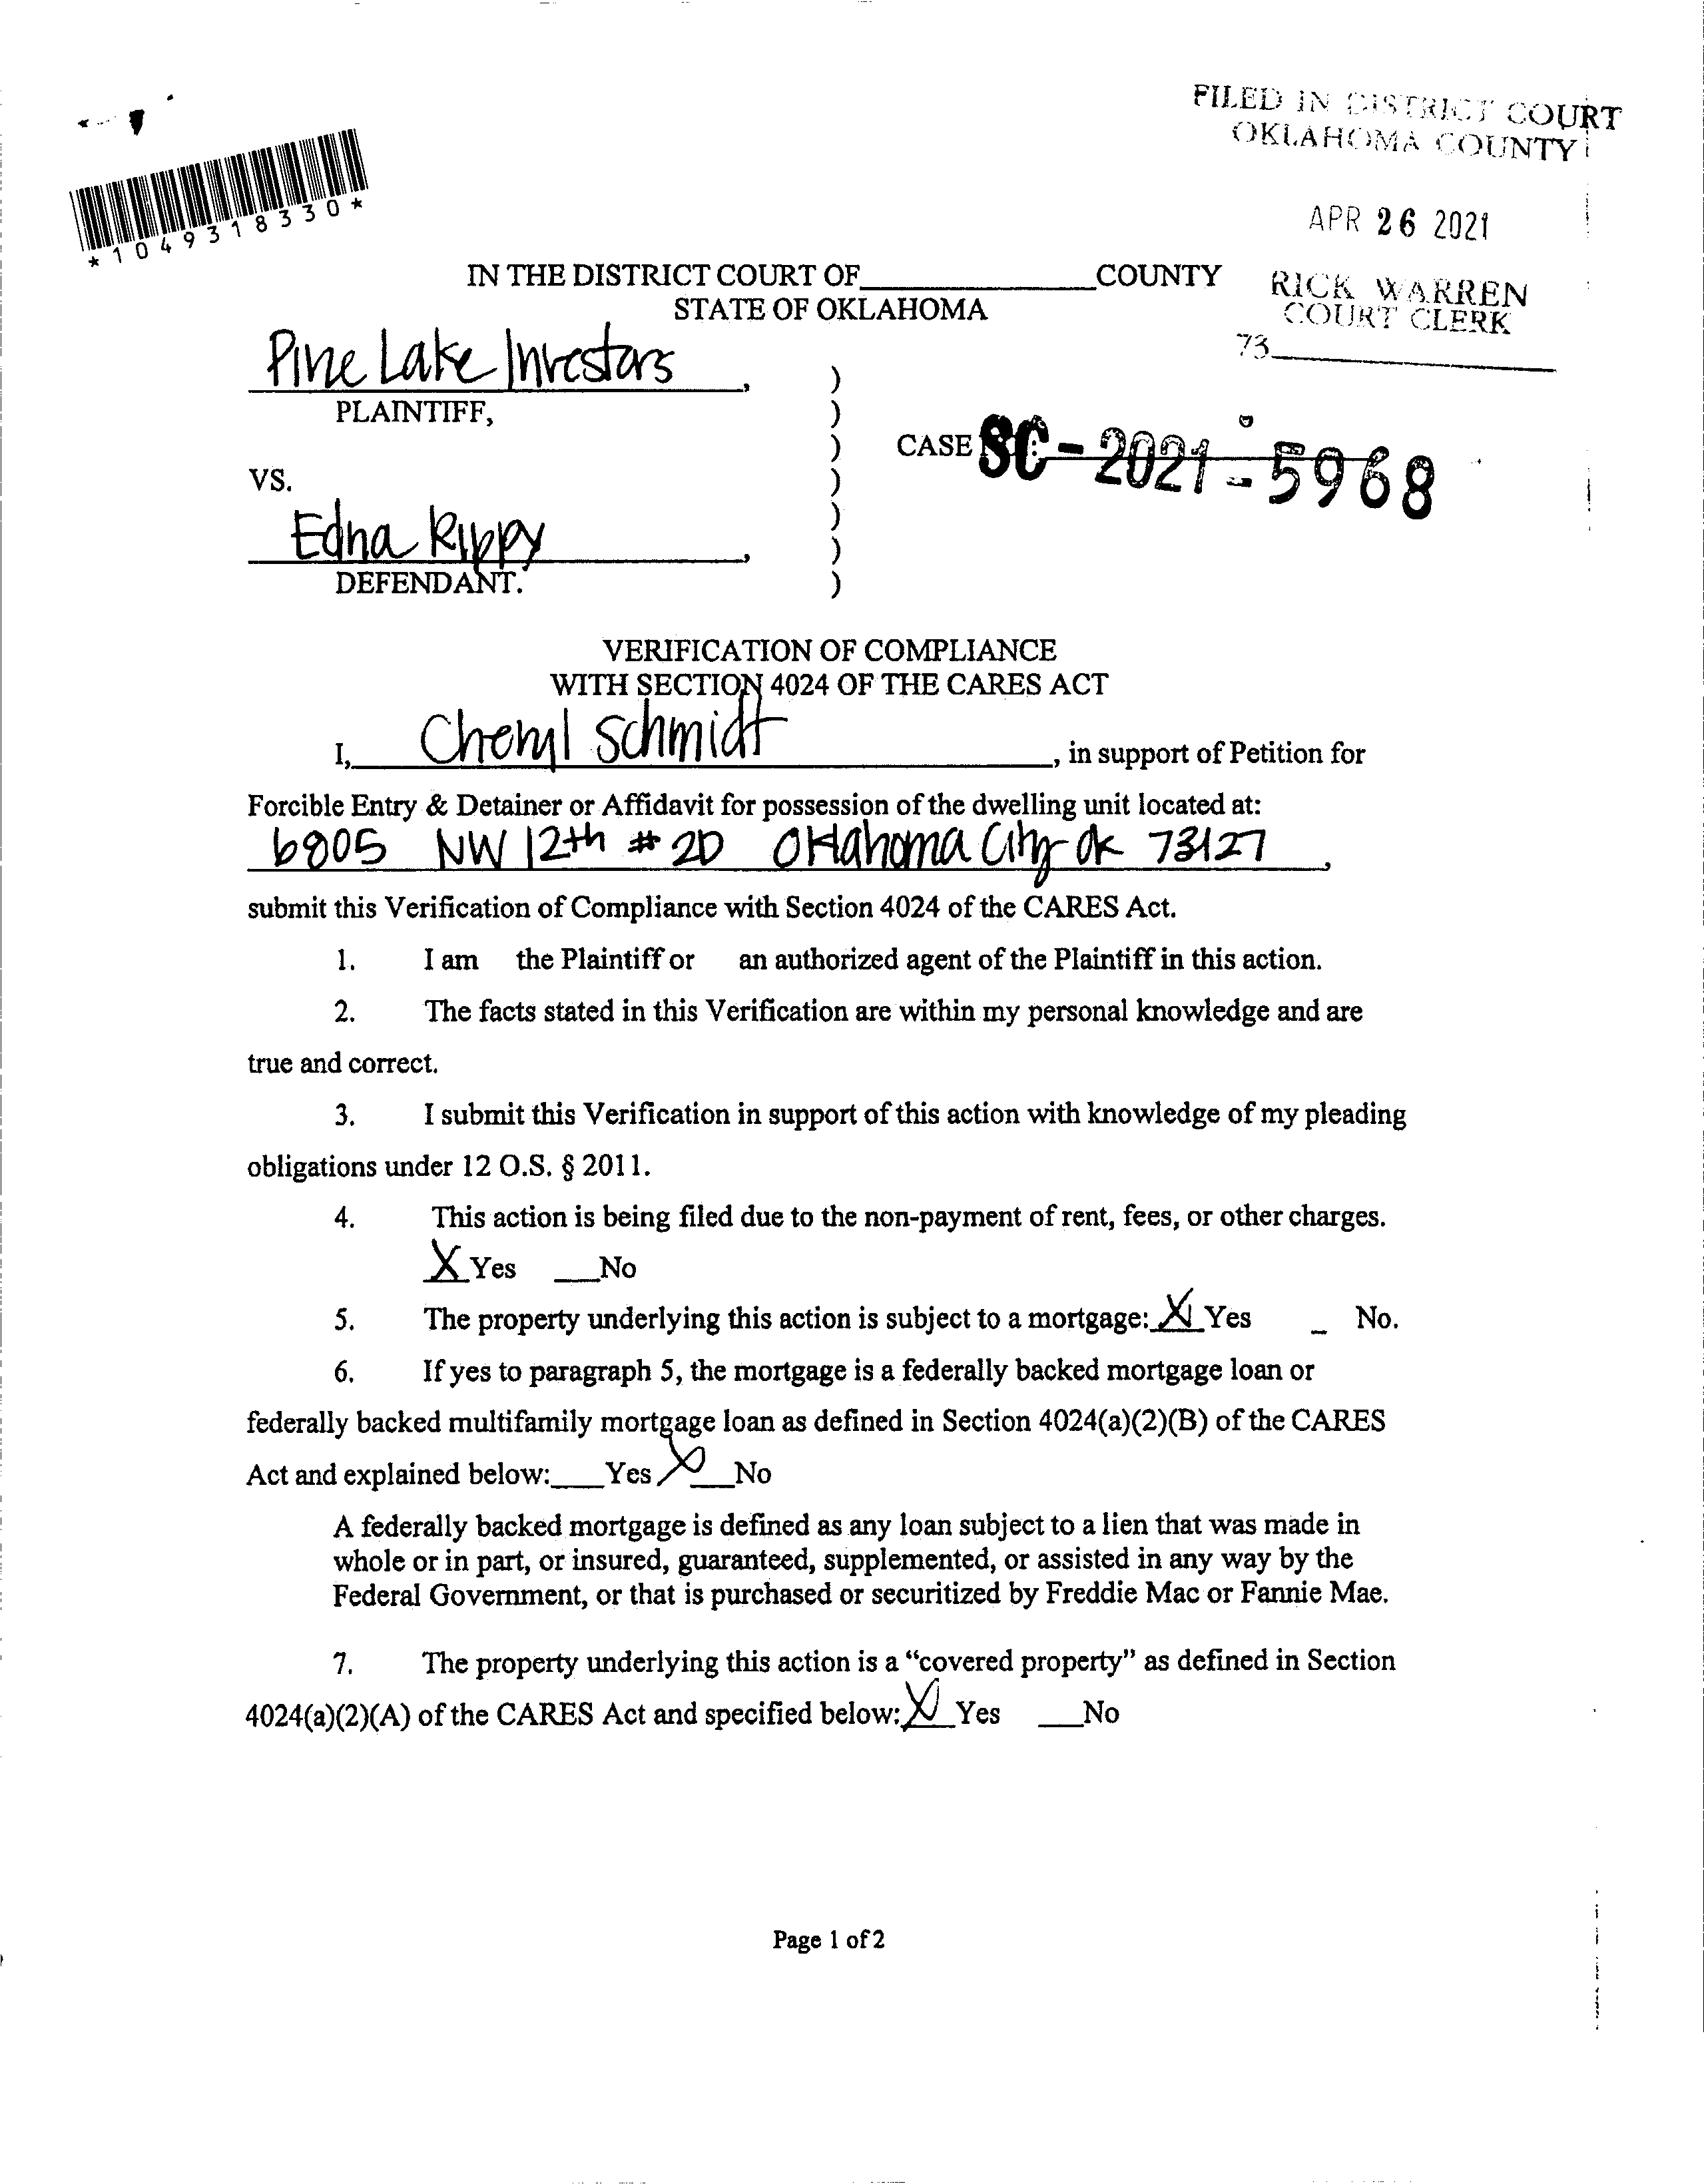 FILED IN DISTRICT COURT
OKLAHOMA COUNTY
APR 26 2021
RICK WARREN
COURT CLERK
73
*1049318330*
IN THE DISTRICT COURT OF______________COUNTY
STATE OF OKLAHOMA
Pine Lake Investors,
PLAINTIFF,
VS.
CASE SC-2021-5968
Edna Rippy,
DEFENDANT.
)
)
)
)
)
)
)
VERIFICATION OF COMPLIANCE
WITH SECTION 4024 OF THE CARES ACT
I, Cheryl Schmidt, in support of Petition for
Forcible Entry & Detainer or Affidavit for possession of the dwelling unit located at:
6805 NW 12th # 2D Oklahoma City OK 73127,
submit this Verification of Compliance with Section 4024 of the CARES Act.
1. I am the Plaintiff or an authorized agent of the Plaintiff in this action.
2. The facts stated in this Verification are within my personal knowledge and are
true and correct.
3. I submit this Verification in support of this action with knowledge of my pleading
obligations under 12 O.S. § 2011.
4. This action is being filed due to the non-payment of rent, fees, or other charges.
X Yes ___No
5. The property underlying this action is subject to a mortgage: X Yes _ No.
6. If yes to paragraph 5, the mortgage is a federally backed mortgage loan or
federally backed multifamily mortgage loan as defined in Section 4024(a)(2)(B) of the CARES
Act and explained below:____Yes X No
A federally backed mortgage is defined as any loan subject to a lien that was made in
whole or in part, or insured, guaranteed, supplemented, or assisted in any way by the
Federal Government, or that is purchased or securitized by Freddie Mac or Fannie Mae.
7. The property underlying this action is a “covered property” as defined in Section
4024(a)(2)(A) of the CARES Act and specified below: X Yes ___No
Page 1 of 2